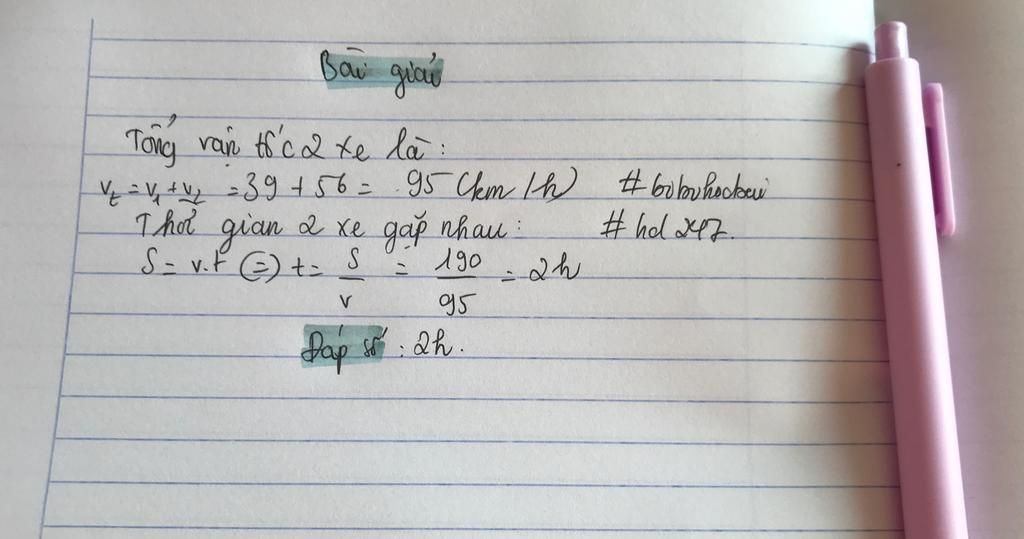 Bài giải
Tổng vận tốc 2 xe là :
v_t = v_1 + v_2 = 39 + 56 = 95 (km/h)
Thời gian 2 xe gặp nhau : # hd 247.
S = v.t ⇔ t = S/v = 190/95 = 2h
Đáp số : 2h.